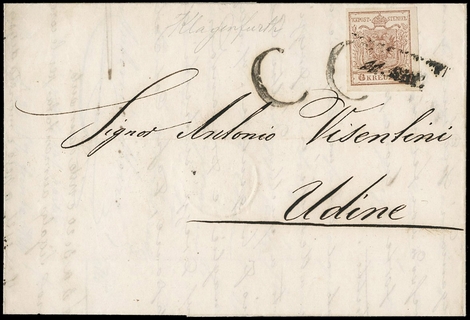 Klagenfurth
KKPOST-STEMPEL
6 KREUZER
Signor Antonio Visentini
Udine